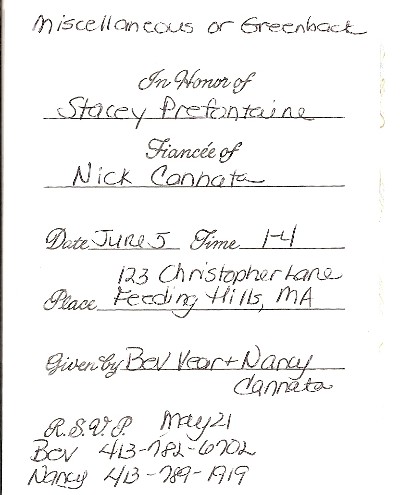 Miscellaneous or Greenback
In Honor of
Stacey Prefontaine
Fiancée of
Nick Cannata
Date June 5 Time 1-4
123 Christopher Lane
Place Feeding Hills, MA
Given by Bev Vear + Nancy
Cannata
R.S.V.P. May 21
Bev 413-782-6702
Nancy 413-789-1919